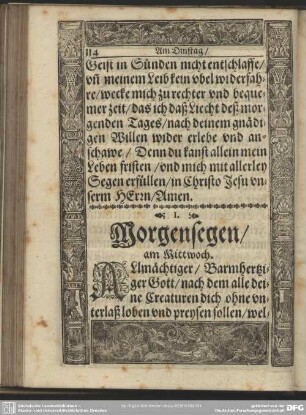 114 Am Dinstag/
Geist in Sünden nicht entschlaffe/
vñ meinem Leib kein vbel widerfah-
re/wecke mich zu rechter vnd beque-
mer zeit/das ich daß Liecht deß mor-
genden Tages/nach deinem gnädi-
gen Willen wider erlebe vnd an-
schawe/Denn du kanst allein mein
Leben fristen/vnd mich mit allerley
Segen erfüllen/in Christo Jesu vn-
serm HErꝛn/Amen.
I.
Morgensegen/
am Mittwoch.
ALlmächtiger/Barmhertzi-
ger Gott/nach dem alle dei-
ne Creaturen dich ohne vn-
terlaß loben vnd preysen sollen/wel-